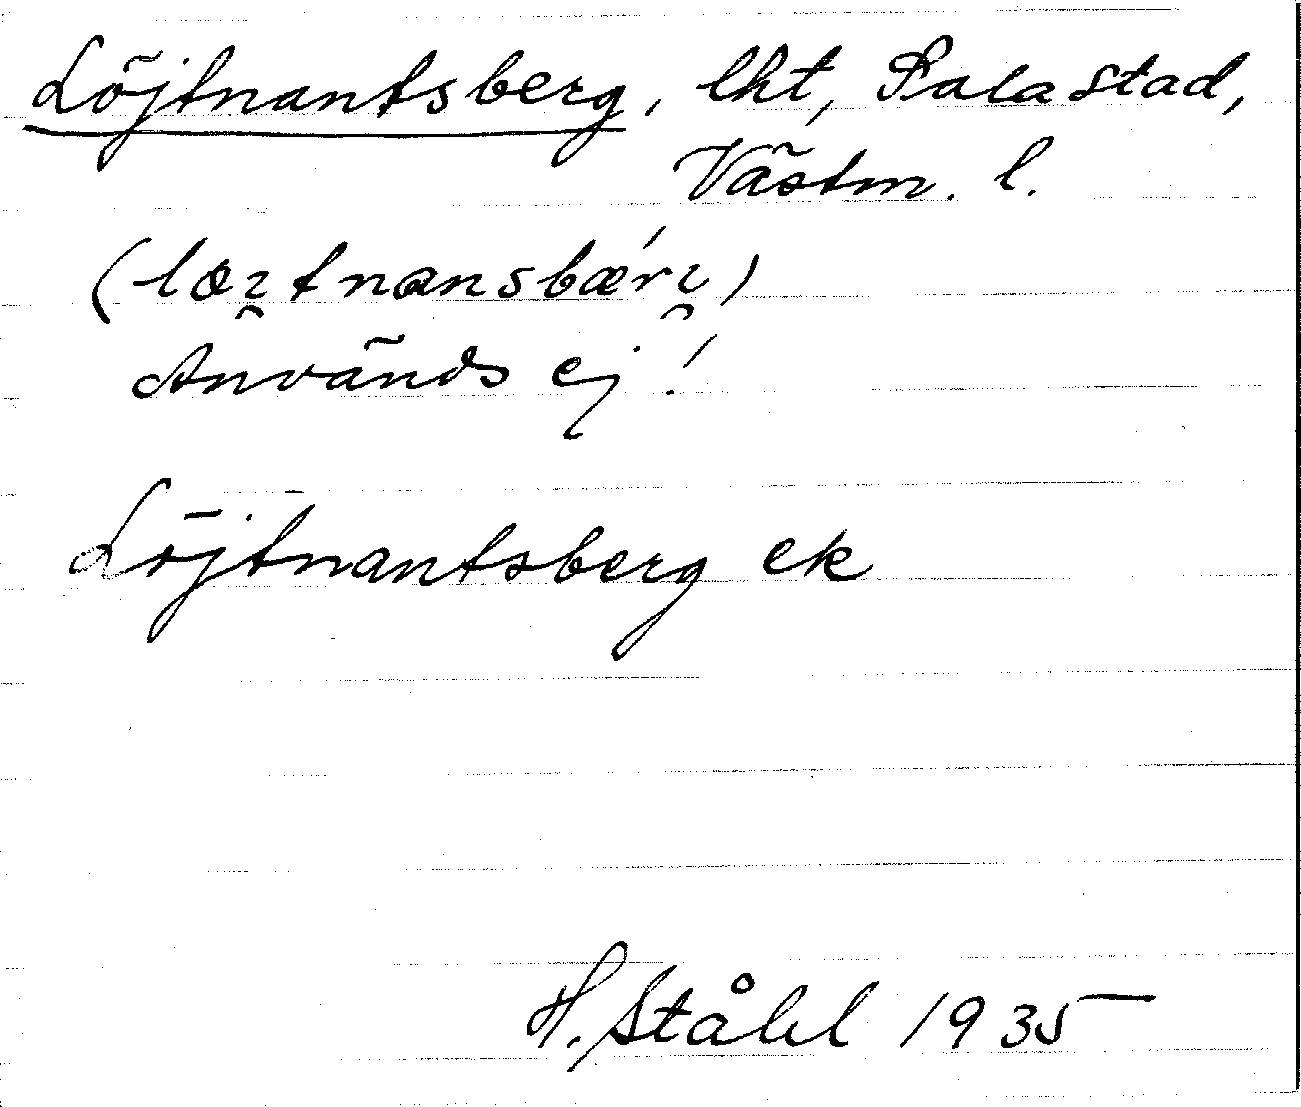 Löjtnantsberg, lht, Sala stad,
Västm. l.
(lɷɪ̯tnansbǽrɪ̯)
Används ej!
Löjtnantsberg ek
H. Ståhl 1935